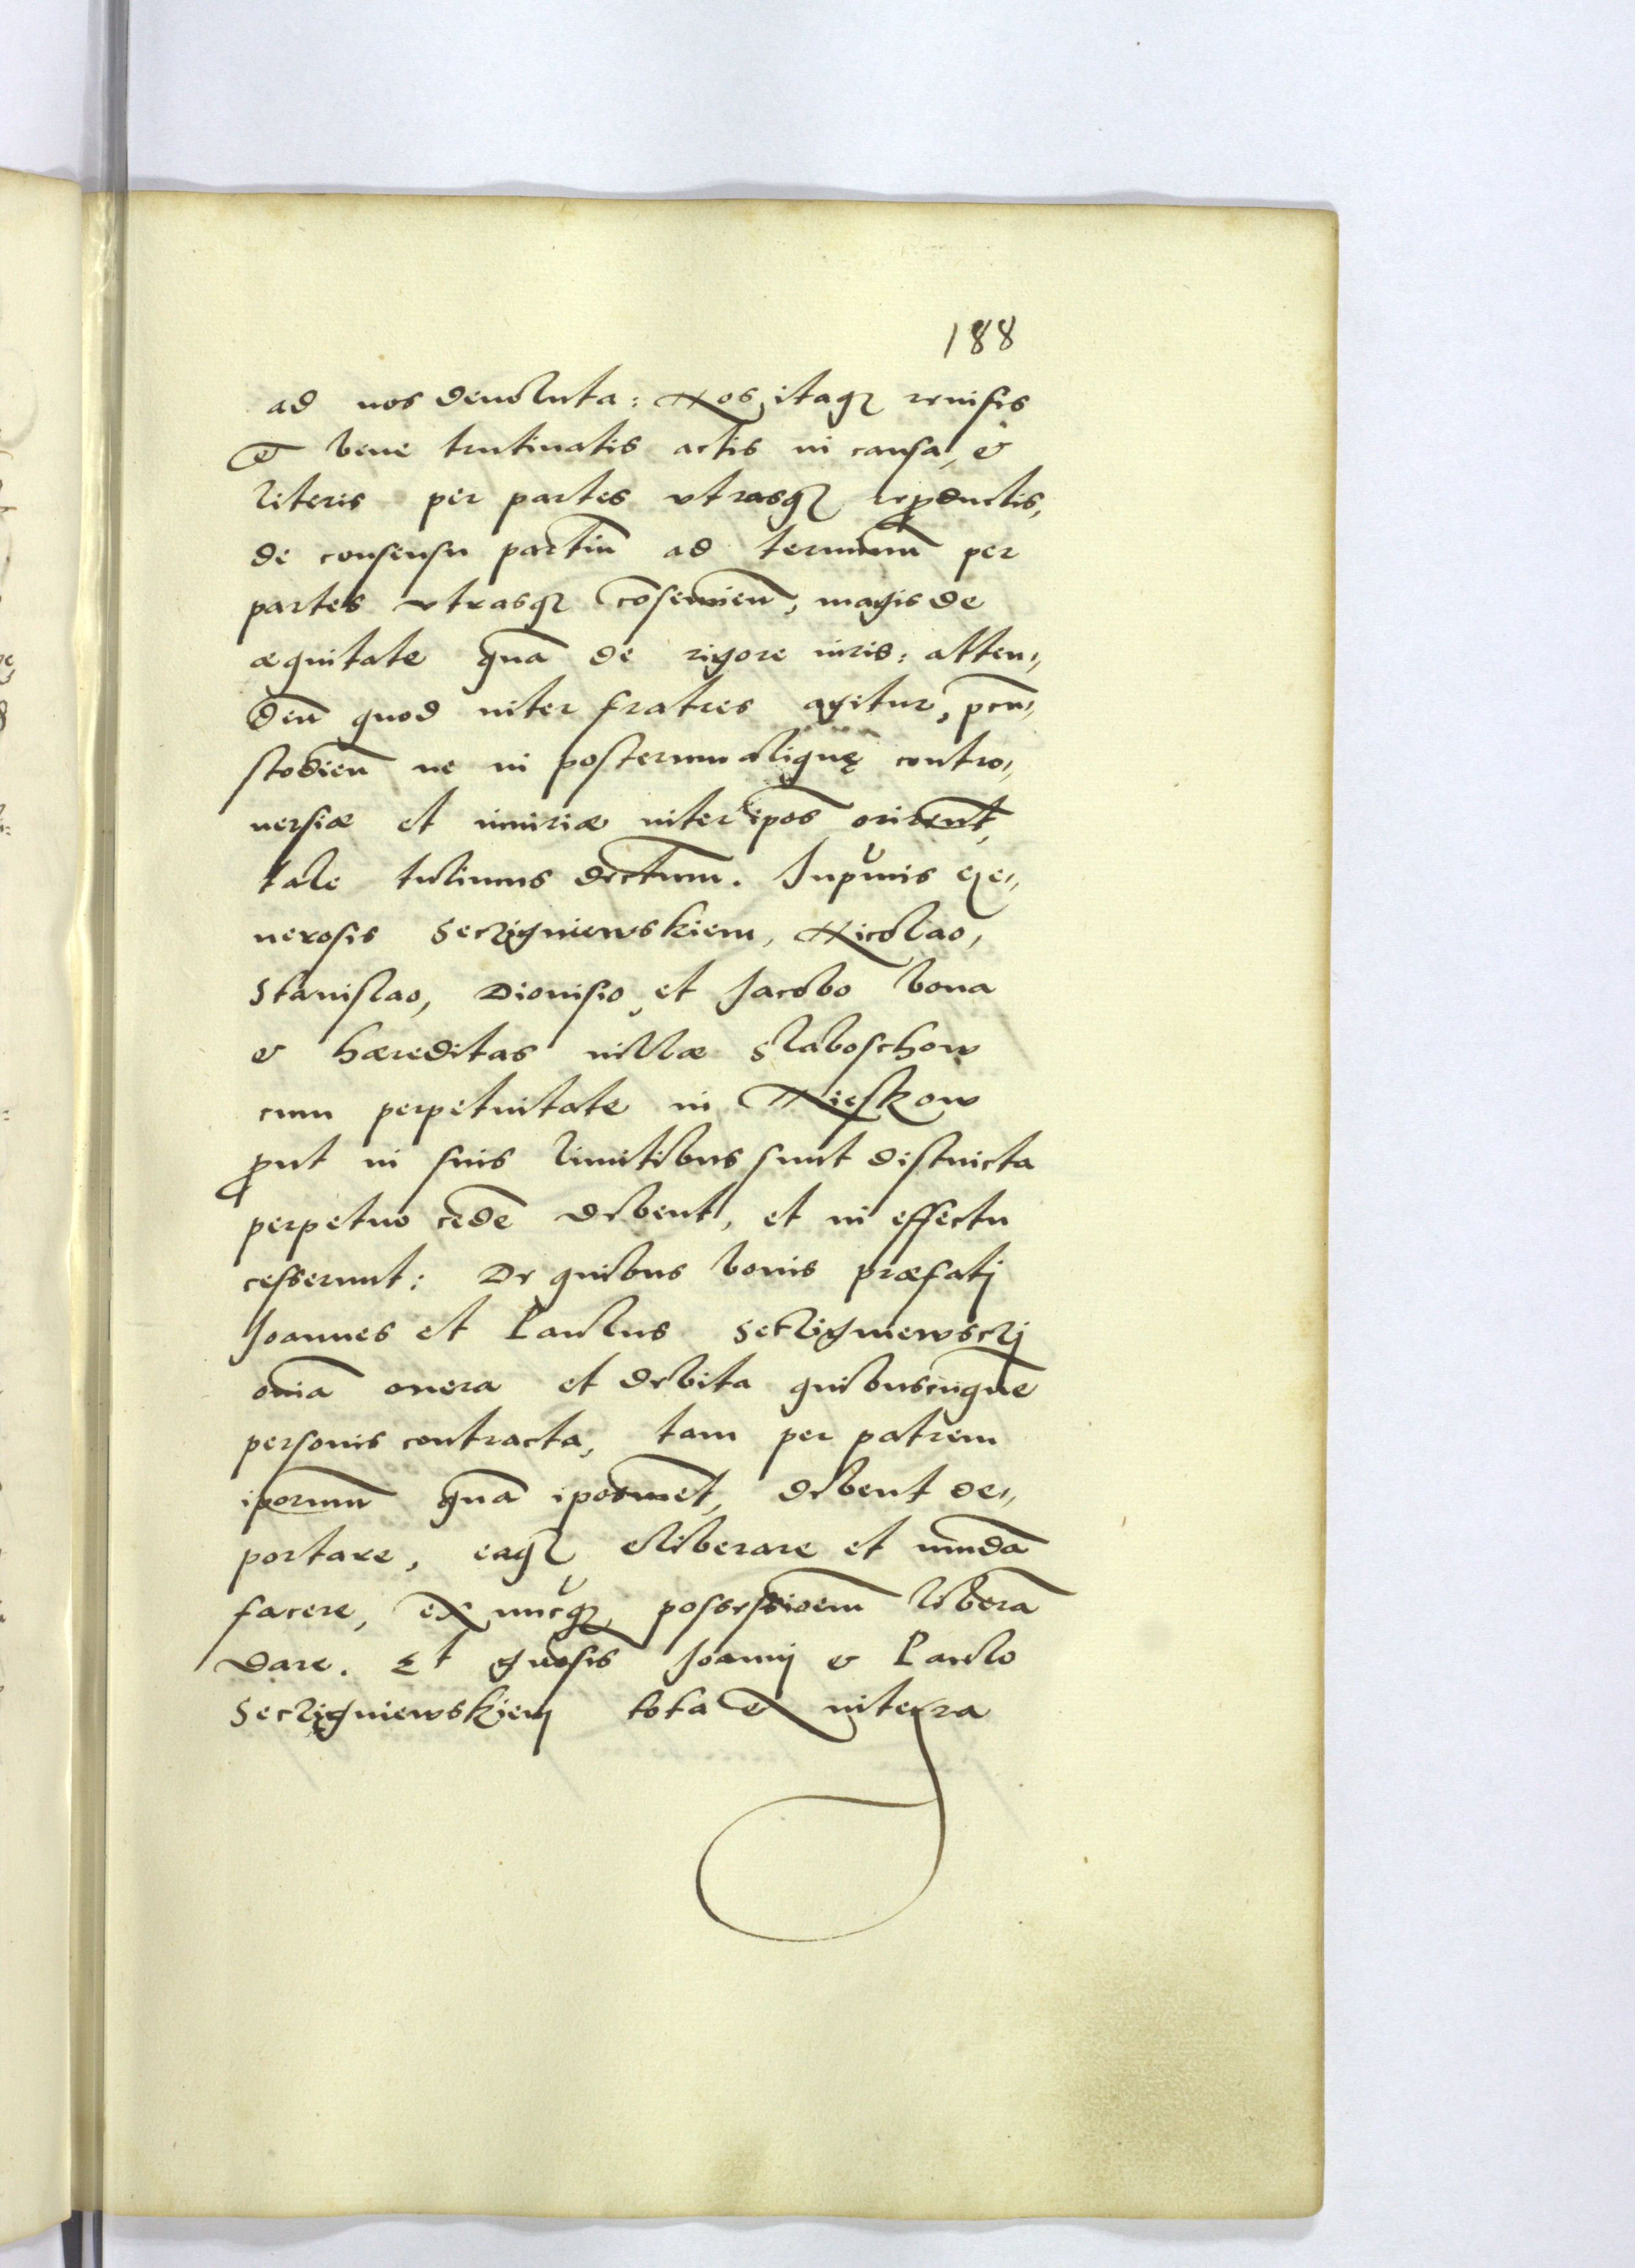 188
ad nos deuoluta: Nos itaq₃ reuisis
et bene trutinatis actis in causa, &
literis per partes vtrasq₃ reꝓductis,
de consensu partiū ad terminū per
partes vtrasq₃ cōseruien̄, magis de
æquitate quā de rigore iuris: atten„
den̄ quod inter fratres agitur, prcu„
stodien̄ ne in posterum aliquę contro„
uersiæ et iniuriæ inter ip̄os orirent̄,
tale tulimus decretum. Inprimis ge„
nerosis Seczigniewskiem, Nicolao,
Stanislao, Dionisio, et Jacobo bona
& hæreditas uillæ Slaboschow
cum perpetuitate in Mieskow
ꝓut in suis limitibus sunt distincta
perpetuo cedē debent, et in effectu
cesserunt: De quibus bonis præfatj
Joannes et Paulus Seczigniewscij
om̄ia onera et debita quibuscūque
personis contracta, tam per patrem
ip̄orum quā ip̄osmet, debent de„
portare, eaq₃ eliberare et mūda
facere, ex nūcq₃ possessioem̄ liberā
dare. Et gn̄osis Joannj & Paulo
Seczigniewskiem tota et integra